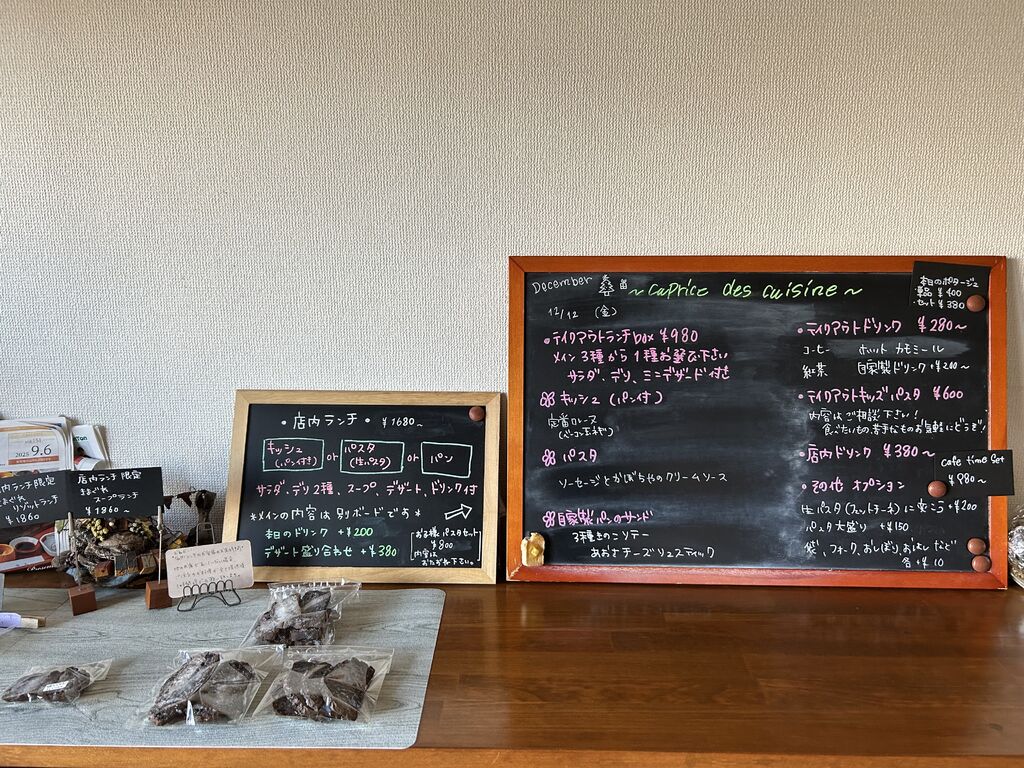 2025
9.6
店内ランチ限定
リゾットランチ
¥1860
店内ランチ限定
きまぐれ
スープランチ
¥1860~
・店内ランチ・ ¥1680~
キッシュ
(パン付き)
or
パスタ
(生パスタ)
or
パン
サラダ、デリ2種、スープ、デザート、ドリンク付
*メインの内容は別ボードです*
本日のドリンク +¥200
デザート盛り合わせ +¥380
お子様パスタセット
¥800
内容は
おたずね下さい。
December
~caprice des cuisine~
12/12 (金)
・テイクアウトランチbox ¥980
メイン3種から1種お選び下さい
サラダ、デリ、ミニデザート付き
キッシュ(パン付)
定番ロレーヌ
(ベーコン玉ネギ)
パスタ
ソーセージとかぼちゃのクリームソース
自家製パンのサンド
3種きのこソテー
あおさチーズリュスティック
本日のポタージュ
単品 ¥400
・セット¥380
・テイクアウトドリンク ¥280~
コーヒー ホット カモミール
紅茶 自家製ドリンク+¥200~
・テイクアウトキッズパスタ ¥600
内容はご相談下さい!
食べたいもの、苦手なものお気軽にどうぞ
・店内ドリンク ¥380~
cafe time set
¥980~
・その他 オプション
生パスタ(フェットチーネ)に変こう +¥200
パスタ大盛り +¥150
袋、フォーク、おしぼり、おはし など
各+¥10